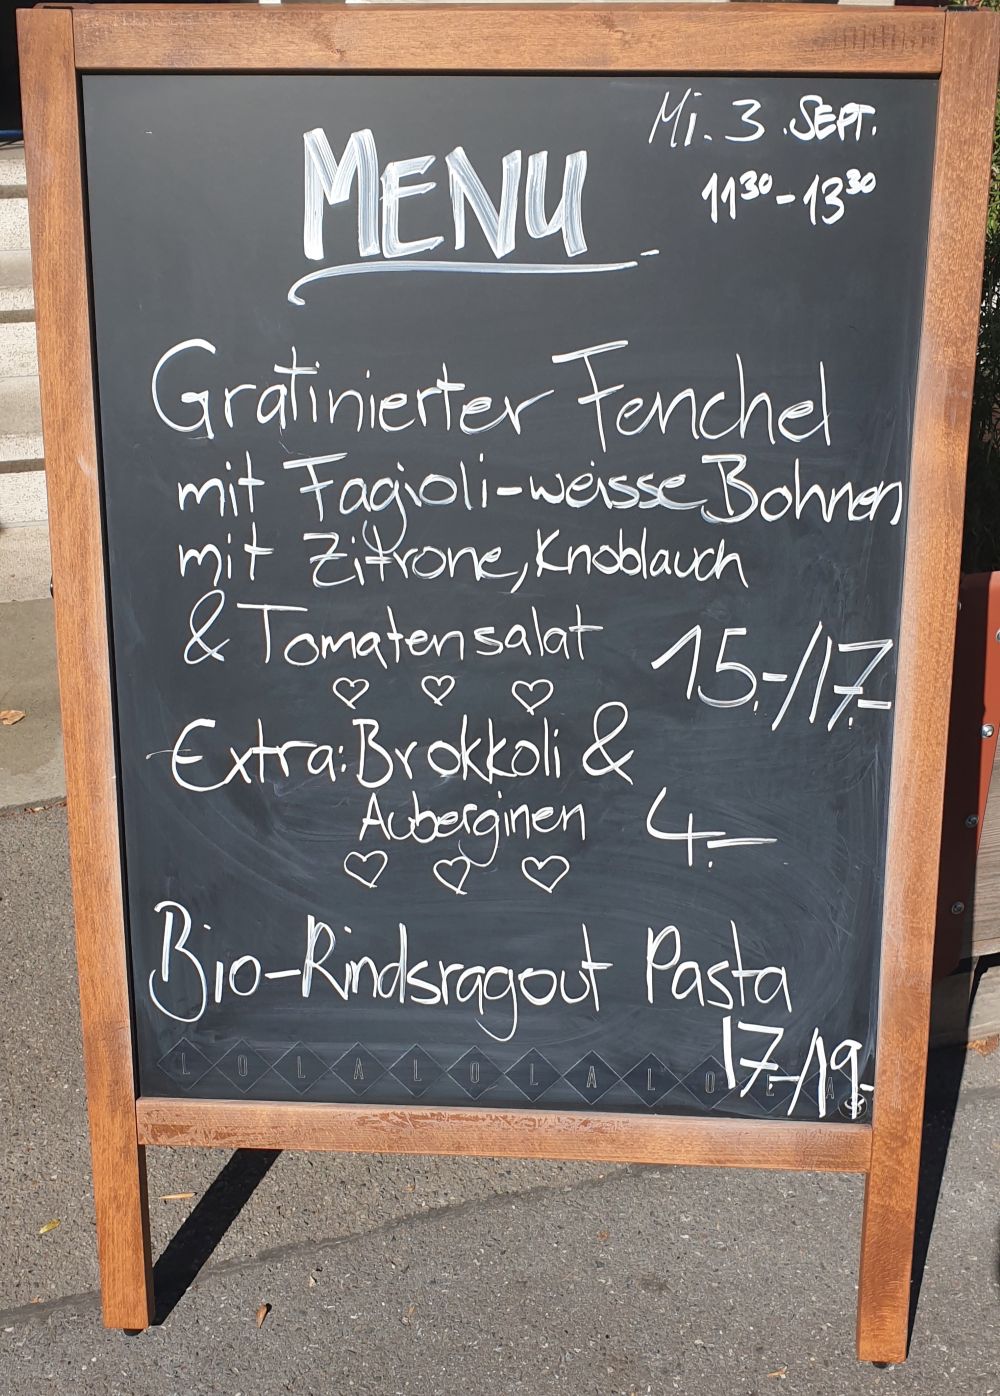 Mi. 3. SEPT.
11³⁰-13³⁰
MENU
Gratinierter Fenchel
mit Fagioli-weisse Bohnen
mit Zitrone, Knoblauch
& Tomatensalat 15.-/17.-
Extra: Brokkoli &
Auberginen 4.-
Bio-Rindsragout Pasta
17.-/19.-
LOLALOLALO